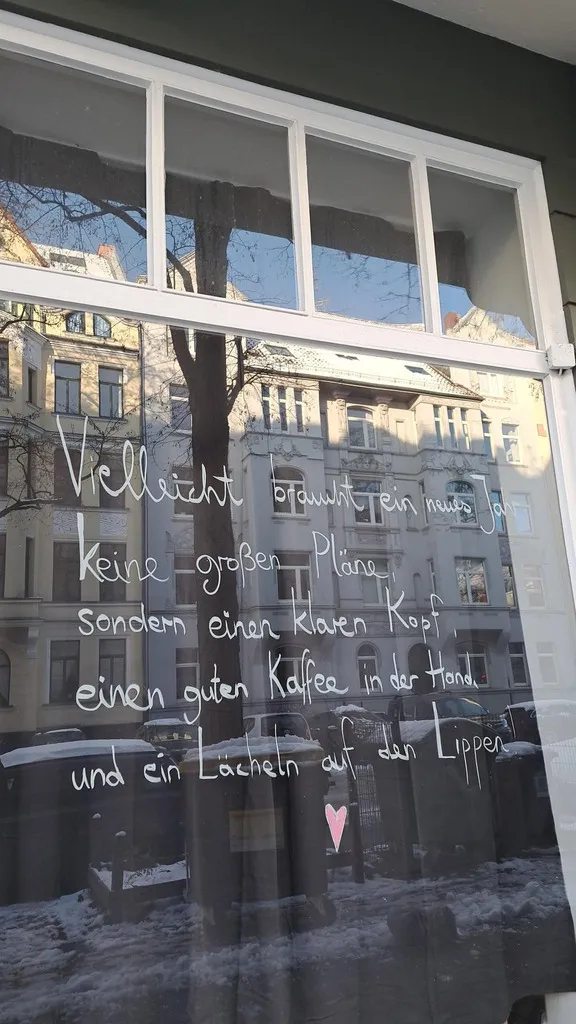 Vielleicht braucht ein neues Jahr
keine großen Pläne,
sondern einen klaren Kopf,
einen guten Kaffee in der Hand
und ein Lächeln auf den Lippen